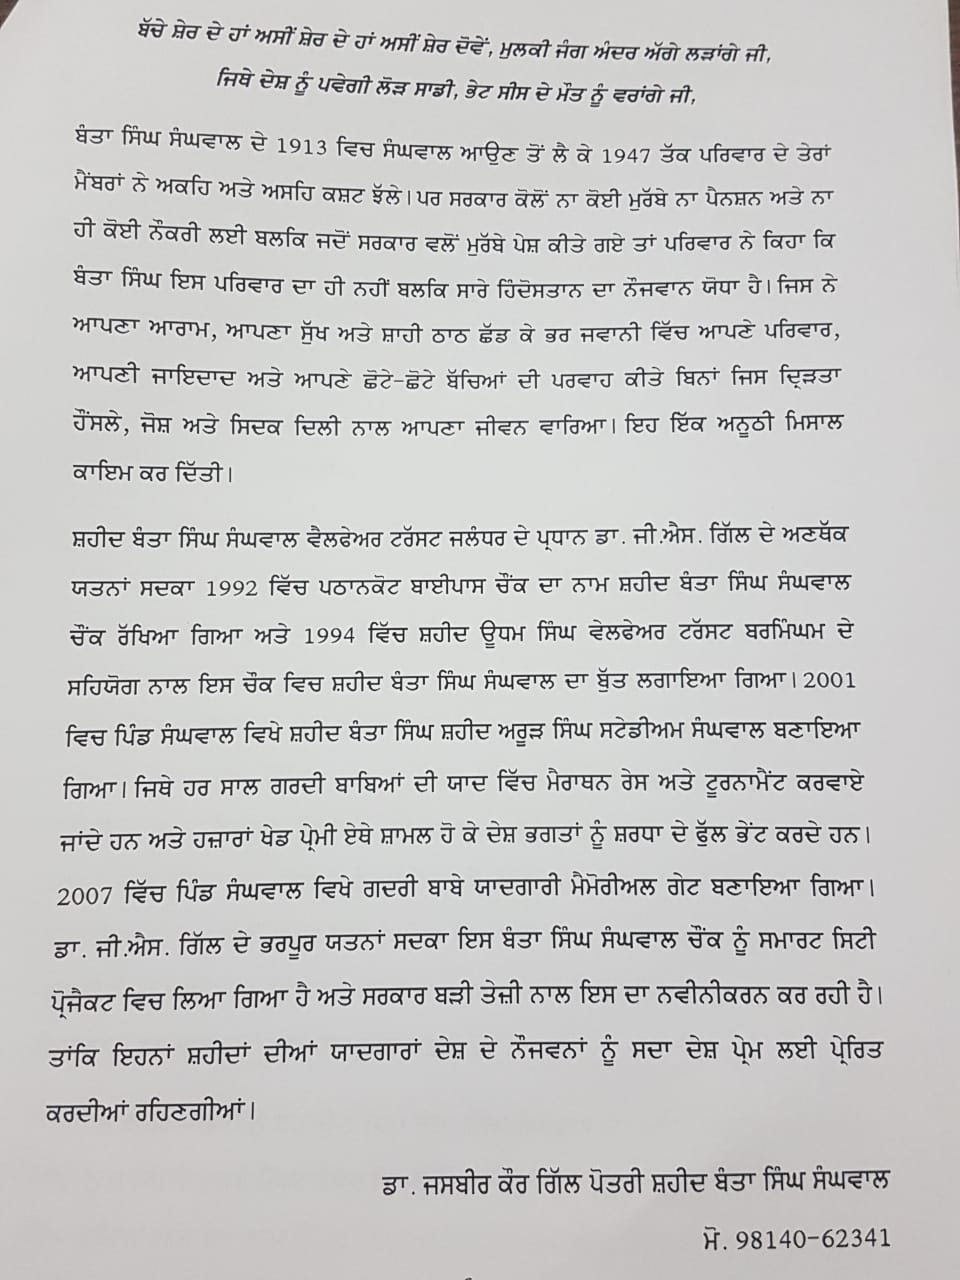 ਬੱਚੇ ਸ਼ੇਰ ਦੇ ਹਾਂ ਅਸੀਂ ਸ਼ੇਰ ਦੇ ਹਾਂ ਅਸੀਂ ਸ਼ੇਰ ਦੋਵੇਂ, ਮੁਲਕੀ ਜੰਗ ਅੰਦਰ ਅੱਗੇ ਲੜਾਂਗੇ ਜੀ,
ਜਿਥੇ ਦੇਸ਼ ਨੂੰ ਪਵੇਗੀ ਲੋੜ ਸਾਡੀ, ਭੇਟ ਸੀਸ ਦੇ ਮੌਤ ਨੂੰ ਵਰਾਂਗੇ ਜੀ,
ਬੰਤਾ ਸਿੰਘ ਸੰਘਵਾਲ ਦੇ 1913 ਵਿਚ ਸੰਘਵਾਲ ਆਉਣ ਤੋਂ ਲੈ ਕੇ 1947 ਤੱਕ ਪਰਿਵਾਰ ਦੇ ਤੇਰਾਂ
ਮੈਂਬਰਾਂ ਨੇ ਅਕਹਿ ਅਤੇ ਅਸਹਿ ਕਸ਼ਟ ਝੱਲੇ। ਪਰ ਸਰਕਾਰ ਕੋਲੋਂ ਨਾ ਕੋਈ ਮੁਰੱਬੇ ਨਾ ਪੈਨਸ਼ਨ ਅਤੇ ਨਾ
ਹੀ ਕੋਈ ਨੌਕਰੀ ਲਈ ਬਲਕਿ ਜਦੋਂ ਸਰਕਾਰ ਵਲੋਂ ਮੁਰੱਬੇ ਪੇਸ਼ ਕੀਤੇ ਗਏ ਤਾਂ ਪਰਿਵਾਰ ਨੇ ਕਿਹਾ ਕਿ
ਬੰਤਾ ਸਿੰਘ ਇਸ ਪਰਿਵਾਰ ਦਾ ਹੀ ਨਹੀਂ ਬਲਕਿ ਸਾਰੇ ਹਿੰਦੋਸਤਾਨ ਦਾ ਨੌਜਵਾਨ ਯੋਧਾ ਹੈ। ਜਿਸ ਨੇ
ਆਪਣਾ ਆਰਾਮ, ਆਪਣਾ ਸੁੱਖ ਅਤੇ ਸ਼ਾਹੀ ਠਾਠ ਛੱਡ ਕੇ ਭਰ ਜਵਾਨੀ ਵਿੱਚ ਆਪਣੇ ਪਰਿਵਾਰ,
ਆਪਣੀ ਜਾਇਦਾਦ ਅਤੇ ਆਪਣੇ ਛੋਟੇ-ਛੋਟੇ ਬੱਚਿਆਂ ਦੀ ਪਰਵਾਹ ਕੀਤੇ ਬਿਨਾਂ ਜਿਸ ਦ੍ਰਿੜਤਾ
ਹੌਂਸਲੇ, ਜੋਸ਼ ਅਤੇ ਸਿਦਕ ਦਿਲੀ ਨਾਲ ਆਪਣਾ ਜੀਵਨ ਵਾਰਿਆ। ਇਹ ਇੱਕ ਅਨੂਠੀ ਮਿਸਾਲ
ਕਾਇਮ ਕਰ ਦਿੱਤੀ।
ਸ਼ਹੀਦ ਬੰਤਾ ਸਿੰਘ ਸੰਘਵਾਲ ਵੈਲਫੇਅਰ ਟਰੱਸਟ ਜਲੰਧਰ ਦੇ ਪ੍ਰਧਾਨ ਡਾ. ਜੀ.ਐਸ. ਗਿੱਲ ਦੇ ਅਣਥੱਕ
ਯਤਨਾਂ ਸਦਕਾ 1992 ਵਿੱਚ ਪਠਾਨਕੋਟ ਬਾਈਪਾਸ ਚੌਂਕ ਦਾ ਨਾਮ ਸ਼ਹੀਦ ਬੰਤਾ ਸਿੰਘ ਸੰਘਵਾਲ
ਚੌਂਕ ਰੱਖਿਆ ਗਿਆ ਅਤੇ 1994 ਵਿੱਚ ਸ਼ਹੀਦ ਊਧਮ ਸਿੰਘ ਵੇਲਫੇਅਰ ਟਰੱਸਟ ਬਰਮਿੰਘਮ ਦੇ
ਸਹਿਯੋਗ ਨਾਲ ਇਸ ਚੌਕ ਵਿਚ ਸ਼ਹੀਦ ਬੰਤਾ ਸਿੰਘ ਸੰਘਵਾਲ ਦਾ ਬੁੱਤ ਲਗਾਇਆ ਗਿਆ। 2001
ਵਿਚ ਪਿੰਡ ਸੰਘਵਾਲ ਵਿਖੇ ਸ਼ਹੀਦ ਬੰਤਾ ਸਿੰਘ ਸ਼ਹੀਦ ਅਰੂੜ ਸਿੰਘ ਸਟੇਡੀਅਮ ਸੰਘਵਾਲ ਬਣਾਇਆ
ਗਿਆ। ਜਿਥੇ ਹਰ ਸਾਲ ਗਰਦੀ ਬਾਬਿਆਂ ਦੀ ਯਾਦ ਵਿੱਚ ਮੈਰਾਥਨ ਰੇਸ ਅਤੇ ਟੂਰਨਾਮੈਂਟ ਕਰਵਾਏ
ਜਾਂਦੇ ਹਨ ਅਤੇ ਹਜ਼ਾਰਾਂ ਖੇਡ ਪ੍ਰੇਮੀ ਏਥੇ ਸ਼ਾਮਲ ਹੋ ਕੇ ਦੇਸ਼ ਭਗਤਾਂ ਨੂੰ ਸ਼ਰਧਾ ਦੇ ਫੁੱਲ ਭੇਂਟ ਕਰਦੇ ਹਨ।
2007 ਵਿੱਚ ਪਿੰਡ ਸੰਘਵਾਲ ਵਿਖੇ ਗਦਰੀ ਬਾਬੇ ਯਾਦਗਾਰੀ ਮੈਮੋਰੀਅਲ ਗੇਟ ਬਣਾਇਆ ਗਿਆ।
ਡਾ. ਜੀ.ਐਸ. ਗਿੱਲ ਦੇ ਭਰਪੂਰ ਯਤਨਾਂ ਸਦਕਾ ਇਸ ਬੰਤਾ ਸਿੰਘ ਸੰਘਵਾਲ ਚੌਂਕ ਨੂੰ ਸਮਾਰਟ ਸਿਟੀ
ਪ੍ਰੋਜੈਕਟ ਵਿਚ ਲਿਆ ਗਿਆ ਹੈ ਅਤੇ ਸਰਕਾਰ ਬੜੀ ਤੇਜ਼ੀ ਨਾਲ ਇਸ ਦਾ ਨਵੀਨੀਕਰਨ ਕਰ ਰਹੀ ਹੈ।
ਤਾਂਕਿ ਇਹਨਾਂ ਸ਼ਹੀਦਾਂ ਦੀਆਂ ਯਾਦਗਾਰਾਂ ਦੇਸ਼ ਦੇ ਨੌਜਵਨਾਂ ਨੂੰ ਸਦਾ ਦੇਸ਼ ਪ੍ਰੇਮ ਲਈ ਪ੍ਰੇਰਿਤ
ਕਰਦੀਆਂ ਰਹਿਣਗੀਆਂ।
ਡਾ. ਜਸਬੀਰ ਕੌਰ ਗਿੱਲ ਪੋਤਰੀ ਸ਼ਹੀਦ ਬੰਤਾ ਸਿੰਘ ਸੰਘਵਾਲ
ਮੋ. 98140-62341